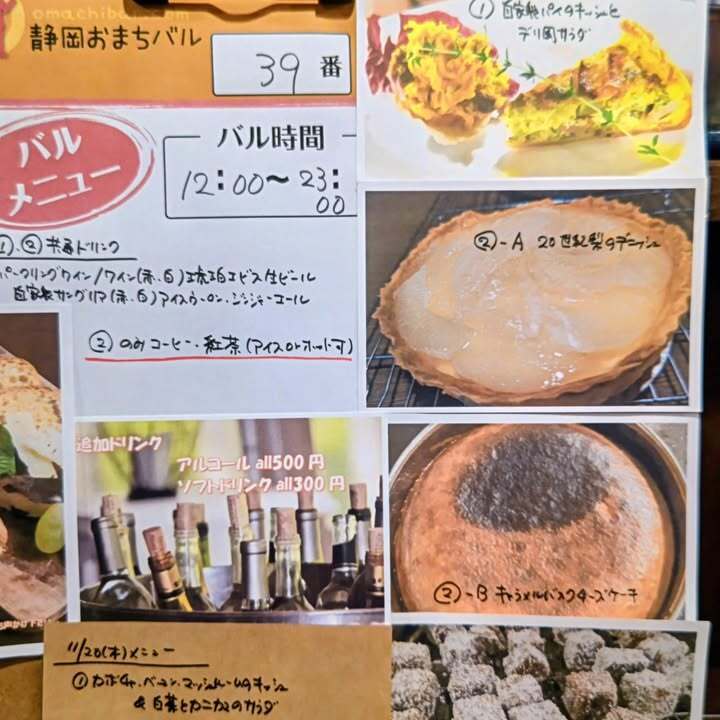 omachiba
静岡おまちバル
39番
バル
メニュー
バル時間
12:00〜23:00
①.② 共通ドリンク
パークリングワイン/ワイン(赤、白)琥珀エビス生ビール
自家製サングリア(赤、白)アイスウーロン・ジンジャーエール
② のみコーヒー・紅茶(アイスorホット可)
① 自家製パイのキッシュと
デリ風サラダ
②-A 20世紀梨のデニッシュ
追加ドリンク
アルコール all500円
ソフトドリンク all300円
②-B キャラメルバスクチーズケーキ
11/20(木)メニュー
① カボチャ、ベーコン、マッシュルームのキッシュ
& 白菜とカニカマのサラダ